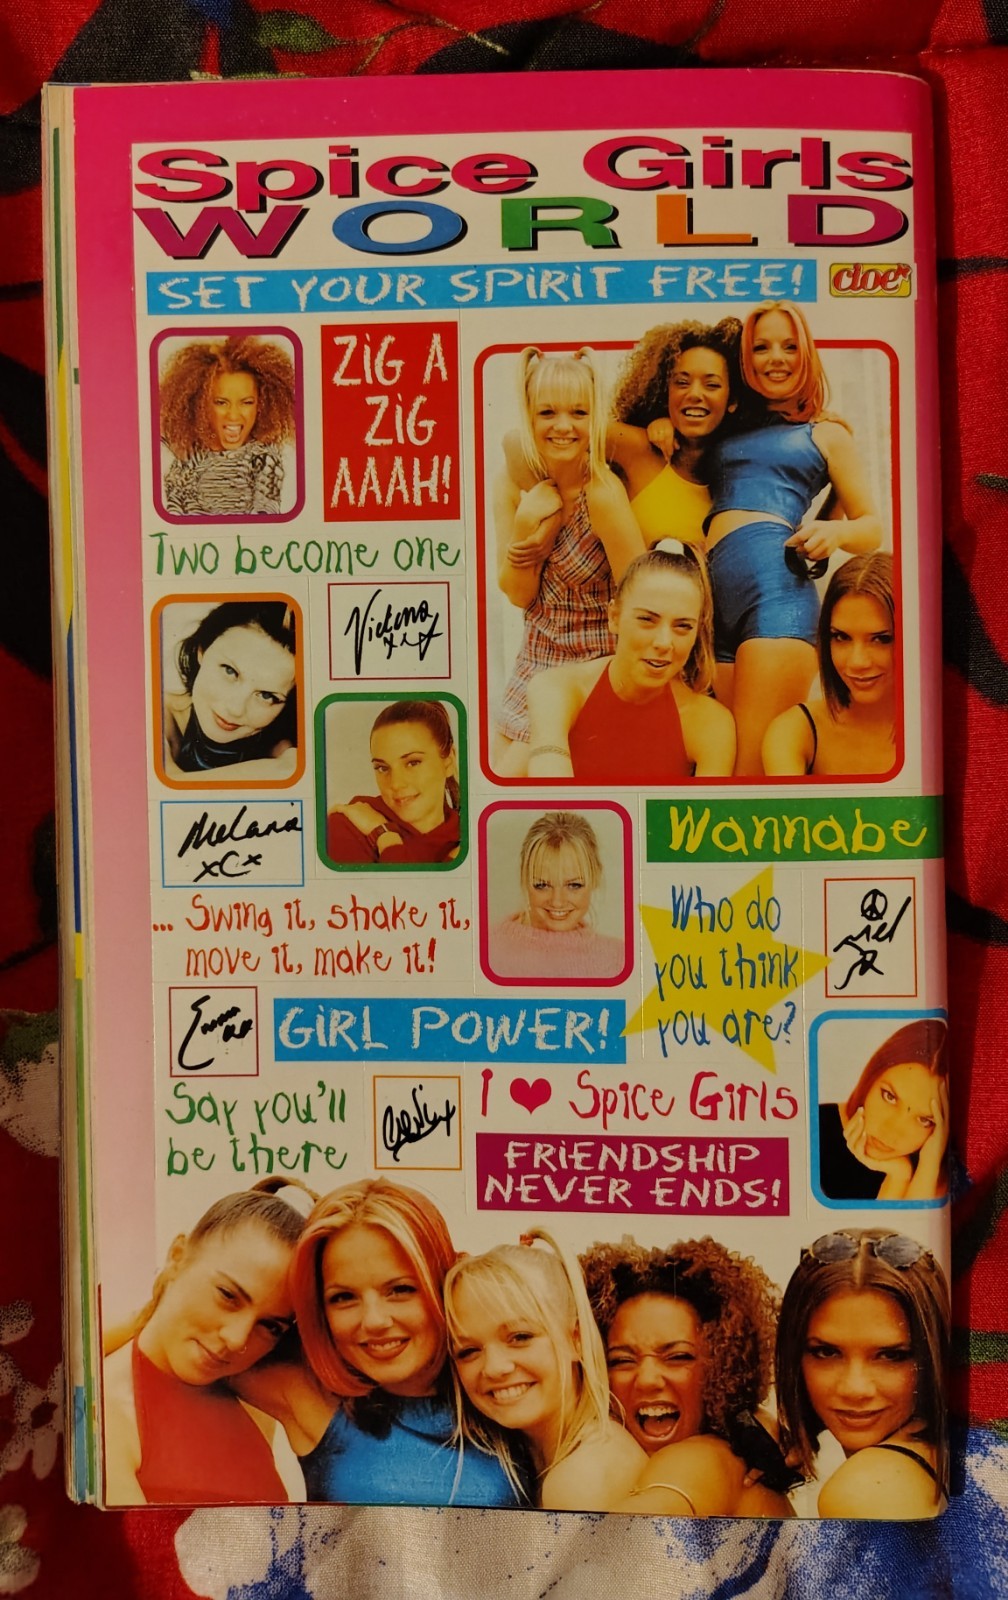 Spice Girls
WORLD
SET YOUR SPIRIT FREE!
cloer
ZIG A
ZIG
AAAH!
Two become one
Victoria
xxx
Melanie
xCx
Wannabe
... Swing it, shake it,
move it, make it!
Who do
you think
you are?
Mel
Emma
xx
GIRL POWER!
Say you'll
be there
I ♥ Spice Girls
FRIENDSHIP
NEVER ENDS!